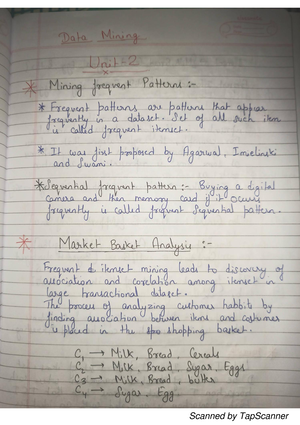 Data Mining
Unit-2
* Mining frequent Patterns :-
* Frequent patterns are patterns that appear
frequently in a dataset. Set of all such item
is called frequent itemset.
* It was first proposed by Agarwal, Imielinski
and Swami.
* Sequential frequent pattern :- Buying a digital
camera and then memory card if it occurs
frequently is called frequent sequential pattern.
* Market Basket Analysis :-
Frequent itemset mining leads to discovery of
association and corelation among itemset in
large transactional dataset.
The process of analyzing customer habbits by
finding association between items and costumer
is placed in the shopping basket.
C1 → Milk, Bread, Cereals
→ Milk, Bread, Sugar, Eggs
C3 → Milk, Bread, butter
C4 → Sugar, Egg
Scanned by TapScanner